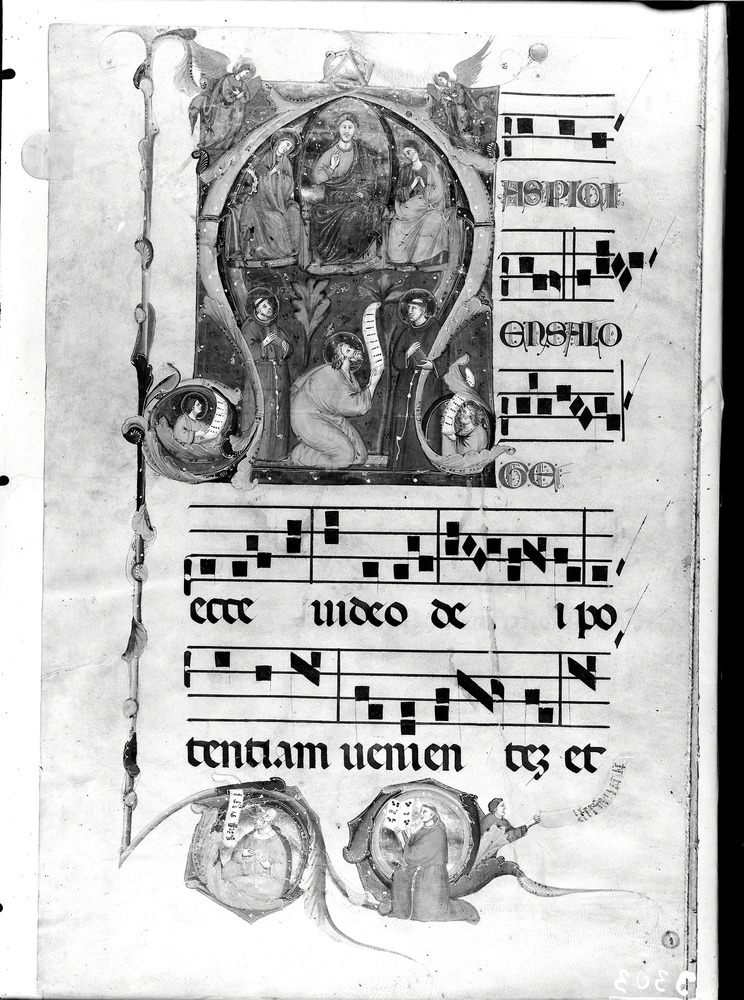 ASPICI
ENSALO
GE
ecce uideo de i po
tentiam uenien tez et